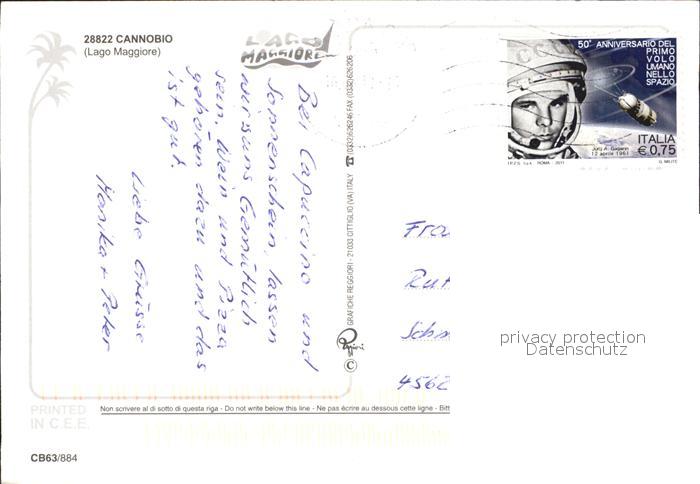 28822 CANNOBIO
(Lago Maggiore)
LAGO
MAGGIORE
Bei Capuccino und
Sonnenschein, lassen
wirs uns Gemütlich
sein, Wein und Pizza
gehören dazu und das
ist gut.
Liebe Grüsse
Monika + Peter
GRAFICHE REGGIORI - 21033 CITTIGLIO (VA) ITALY ☎ (0332)626246 FAX (0332)626206
Reggiori
©
50° ANNIVERSARIO DEL
PRIMO
VOLO
UMANO
NELLO
SPAZIO
CCCP
Jurij A. Gagarin
12 aprile 1961
ITALIA
€ 0,75
I.P.Z.S. S.p.A. - ROMA - 2011
G. MILITE
Frau
Rut
Schm
4562
privacy protection
Datenschutz
Non scrivere al di sotto di questa riga - Do not write below this line - Ne pas écrire au dessous cette ligne - Bitt
PRINTED
IN C.E.E.
CB63/884